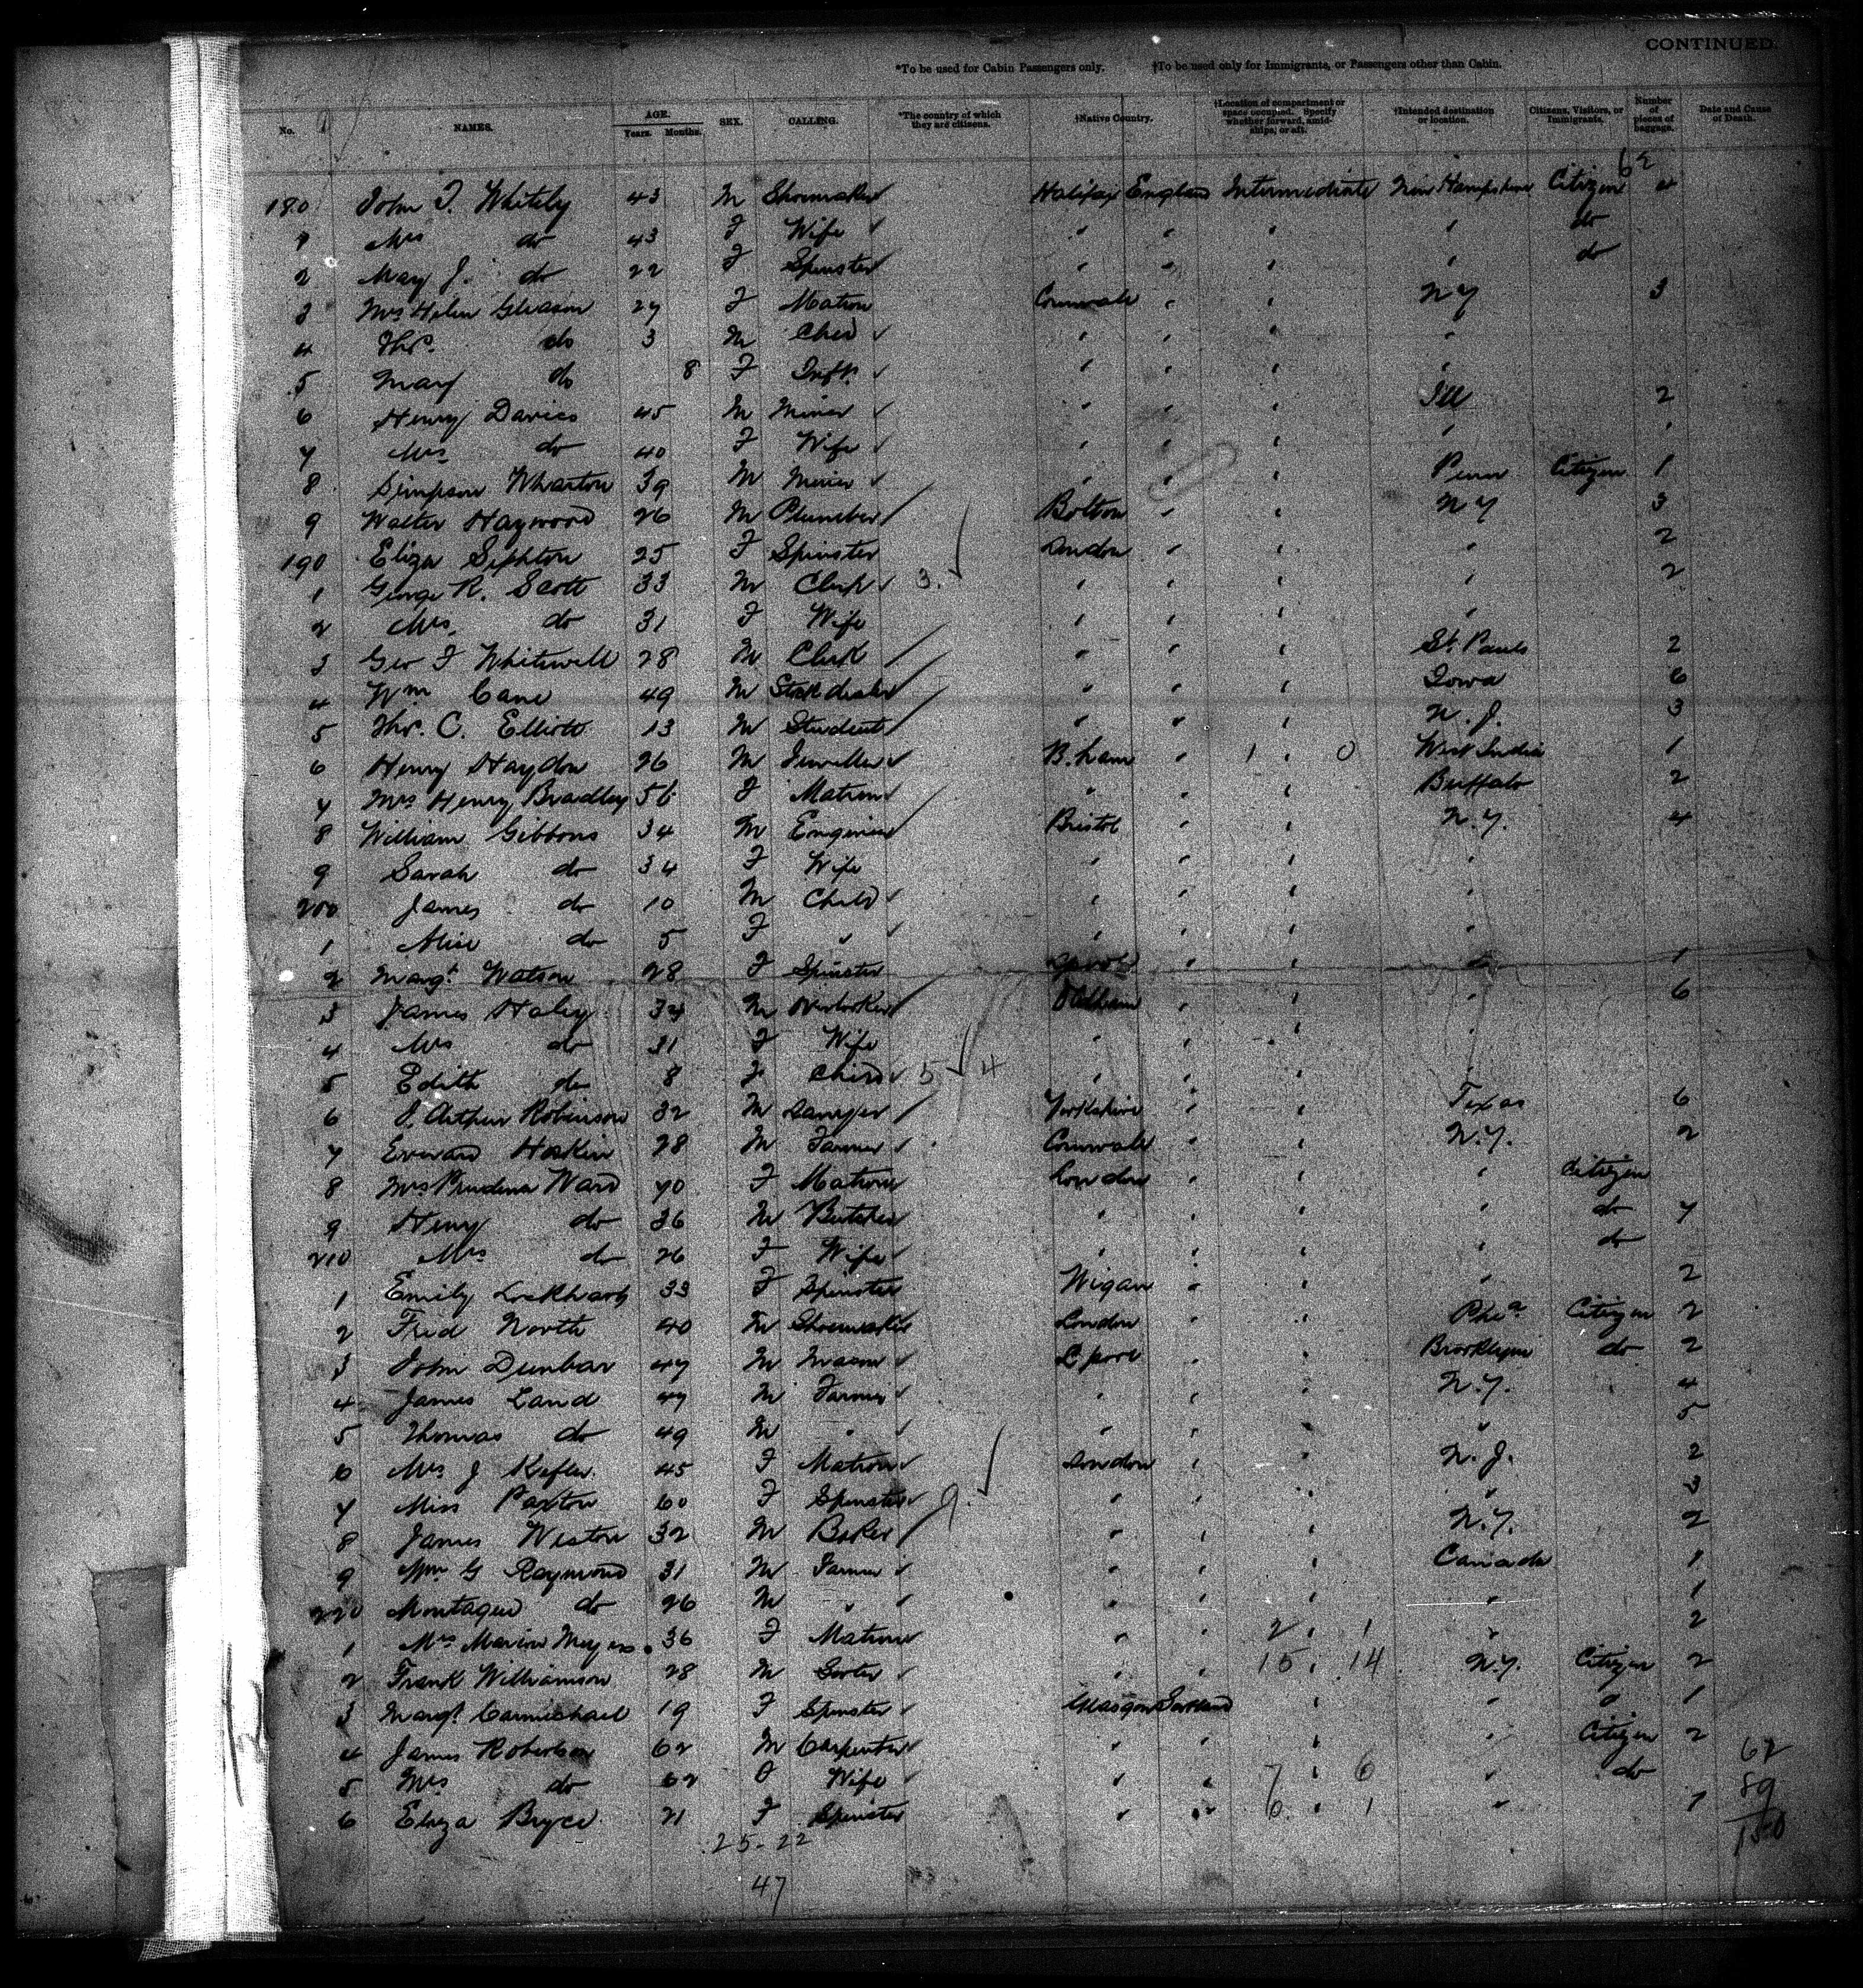 CONTINUED.
*To be used for Cabin Passengers only. †To be used only for Immigrants, or Passengers other than Cabin.
No. NAMES. AGE. Years. Months. SEX. CALLING. *The country of which they are citizens. †Native Country. †Location of compartment or space occupied. Specify whether forward, amidships, or aft. †Intended destination or location. Citizens, Visitors, or Immigrants. Number of pieces of baggage. Date and Cause of Death.
62
180 John T. Whitely 43 M Shoemaker Halifax England Intermediate New Hampshire Citizen 4
1 Mrs do 43 F Wife " " " " do
2 May J. do 22 F Spinster " " " " do
3 Mrs Helen Gleason 27 F Matron Cornwall " " NY 3
4 Thos. do 3 M Child " " " "
5 Mary do 8 F Inft. " " " "
6 Henry Davies 45 M Miner " " " Ill 2
7 Mrs do 40 F Wife " " " " "
8 Simpson Wharton 39 M Miner " " " Penn Citizen 1
9 Walter Haywood 26 M Plumber Bolton " " NY 3
190 Eliza Sephton 25 F Spinster London " " " 2
1 George R. Scott 33 M Clerk 3. " " " " 2
2 Mrs. do 31 F Wife " " " "
3 Geo F Whitewell 28 M Clerk " " " St. Pauls 2
4 Wm Cane 49 M Stock dealer " " " Iowa 6
5 Thos. C. Elliott 13 M Student " " " N.J. 3
6 Henry Haydon 26 M Jeweller B.ham " 1 " 0 West Indies 1
7 Mrs Henry Bradley 56 F Matron " " " Buffalo 2
8 William Gibbons 34 M Engineer Bristol " " N.Y. 4
9 Sarah do 34 F Wife " " " "
200 James do 10 M Child " " " "
1 Alice do 5 F " " " " "
2 Margt. Watson 28 F Spinster " " " 1
3 James Haley 34 M Overlooker Oldham " " " 6
4 Mrs do 31 F Wife " " " "
5 Edith do 8 F Child 5 4 " " " "
6 J. Arthur Robinson 32 M Lawyer Yorkshire " " Texas 6
7 Edward Hoskin 28 M Farmer Cornwall " " N.Y. 2
8 Mrs Prudence Ward 70 F Matron London " " " Citizen
9 Henry do 36 M Butcher " " " " do 7
210 Mrs do 26 F Wife " " " " do
1 Emily Lockhart 33 F Spinster Wigan " " " 2
2 Fred North 40 M Shoemaker London " " Phea Citizen 2
3 John Dunbar 47 M Mason L'pool " " Brooklyn do 2
4 James Land 47 M Farmer " " " N.Y. 4
5 Thomas do 49 M " " " " " 5
6 Mrs J Kefler 45 F Matron London " " N.J. 2
7 Miss Paxton 60 F Spinster 9. " " " " 3
8 James Weston 32 M Baker " " " N.Y. 2
9 Wm G Raymond 31 M Farmer " " " Canada 1
220 Montague do 26 M " " " " " 1
1 Mrs Marion Meyers 36 F Matron " " 2 " 1 " 2
2 Frank Williamson 28 M " " 15 " 14 N.Y. Citizen 2
3 Margt. Carmichael 19 F Spinster Glasgow Scotland " " 0 1
4 James Robertson 62 M Carpenter " " " " Citizen 2
5 Mrs do 62 Wife " " 7 " 6 " do
6 Eliza Bryce 21 F Spinster " " 6 " 1 " 1
62
89
150
25-22
47